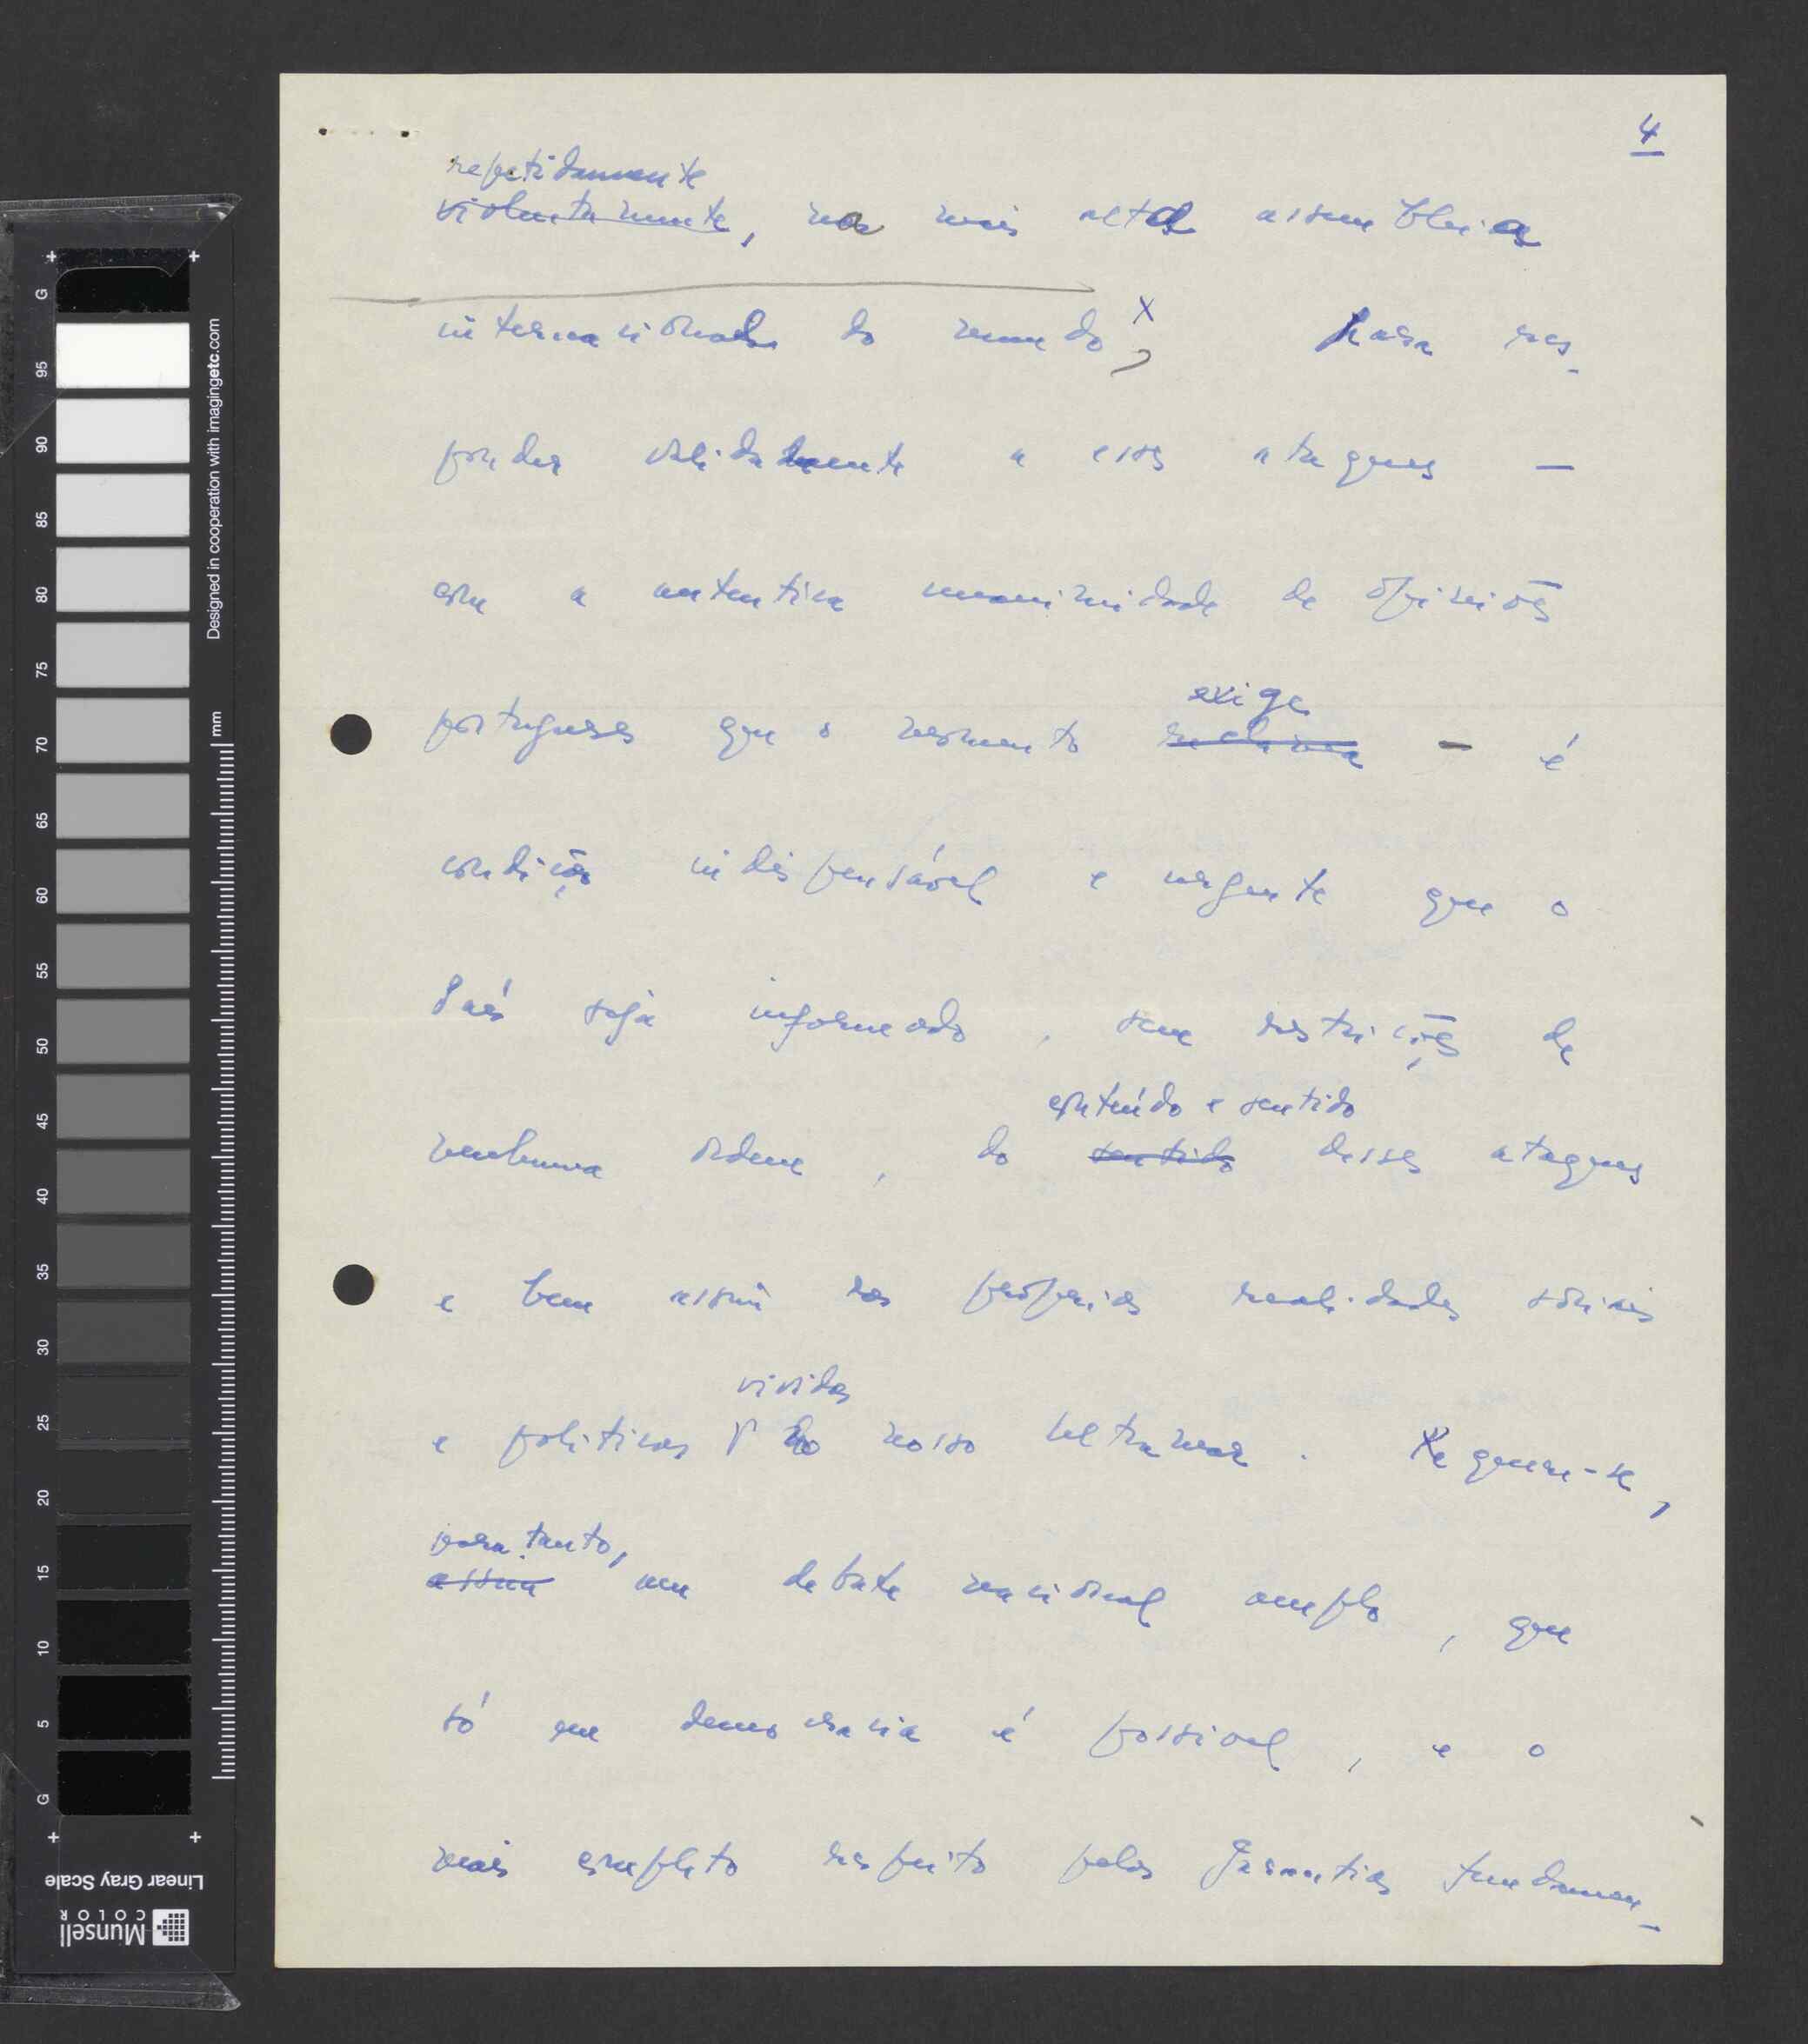 4
repetidamente
violentamente, na mais alta assembleia
internacional do mundo, X Para res-
ponder validamente a esses ataques —
com a autentica unanimidade de opiniões
exige
portuguesas que o momento reclama — é
condição indispensável e urgente que o
País seja informado, sem restrições de
conteúdo e sentido
nenhuma ordem, do sentido desses ataques
e bem assim das próprias realidades sociais
vividas
e politicas no nosso Ultramar. Requere-se,
para tanto,
assim um debate nacional amplo, que
só em democracia é possivel, e o
mais completo respeito pelas garantias fundamen-
G
95
90
85
80
75
70
65
60
55
50
45
40
35
30
25
20
15
10
5
G
mm
Designed in cooperation with imagingetc.com
Linear Gray Scale
Munsell
COLOR